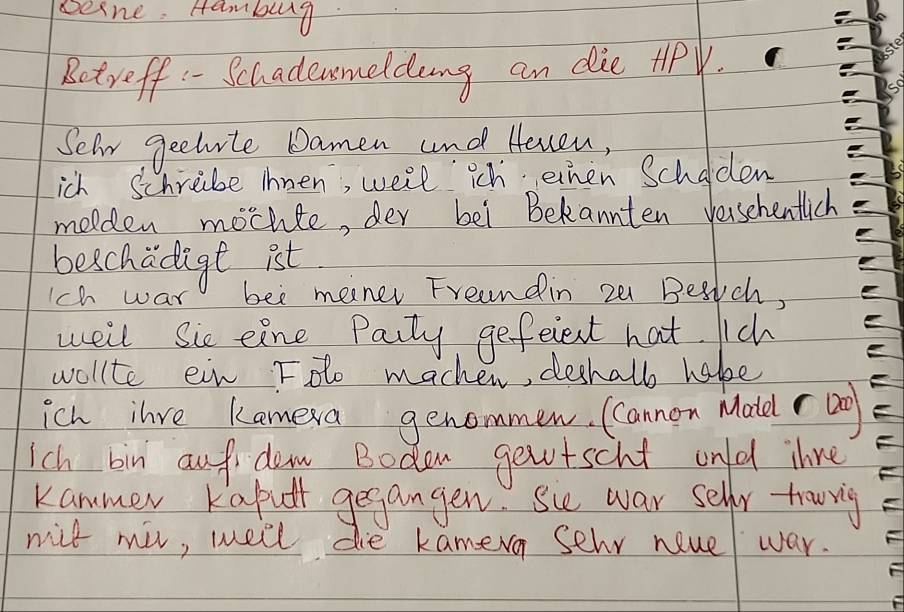 Berne. Hamburg.
Betreff:- Schadensmeldung an die HPV.
Sehr geehrte Damen und Herren,
ich schreibe Ihnen, weil ich einen Schaden
melden möchte, der bei Bekannten versehentlich
beschädigt ist.
Ich war bei meiner Freundin zu Besuch,
weil Sie eine Party gefeiert hat. Ich
wollte ein Foto machen, deshalb habe
ich ihre Kamera genommen. (Cannon Model 1200)
Ich bin auf dem Boden gerutscht und ihre
Kammer kaputt gegangen. Sie war sehr traurig
mit mir, weil die Kamera sehr neue war.